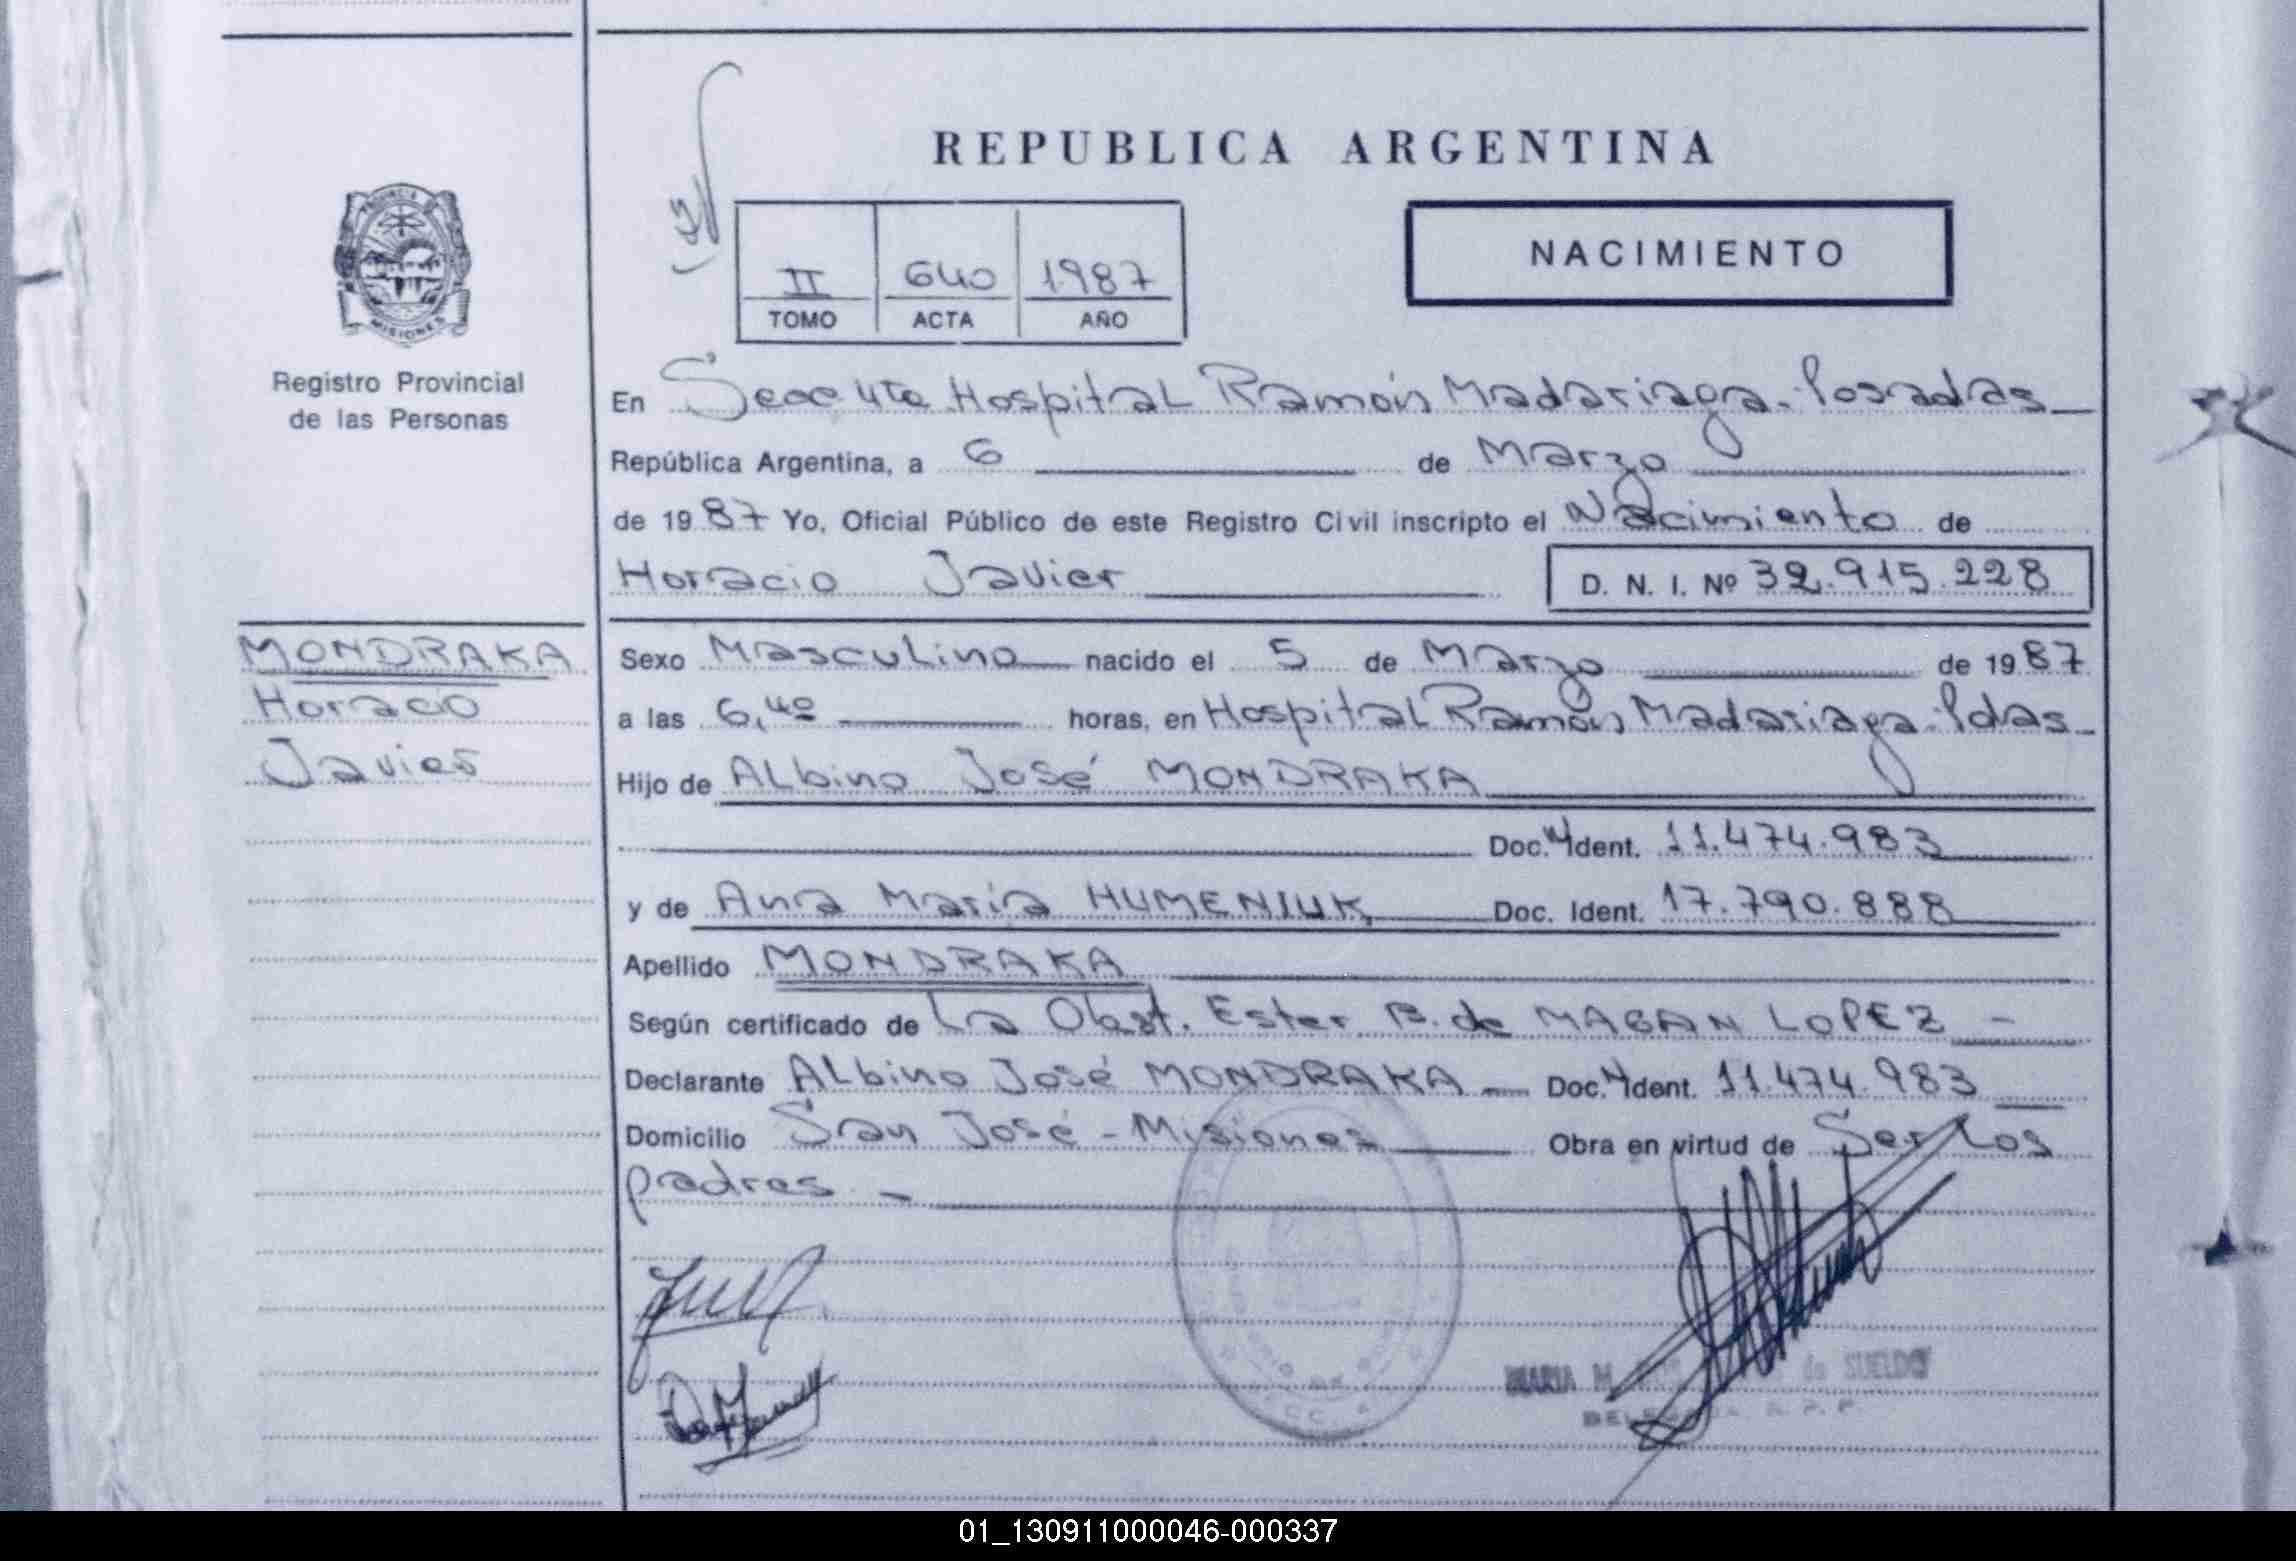 REPUBLICA ARGENTINA
NACIMIENTO
II 640 1987
TOMO ACTA AÑO
PROVINCIA
MISIONES
Registro Provincial
de las Personas
En Secc 4ta Hospital Ramón Madariaga. Posadas
República Argentina, a 6 de Marzo
de 1987 Yo, Oficial Público de este Registro Civil inscripto el Nacimiento de
Horacio Javier D. N. I. Nº 32.915.228
MONDRAKA
Horacio
Javier
Sexo Masculino nacido el 5 de Marzo de 1987
a las 6,40 horas, en Hospital Ramón Madariaga. Pdas
Hijo de Albino José MONDRAKA
Doc. Ident. 11.474.983
y de Ana María HUMENIUK, Doc. Ident. 17.790.888
Apellido MONDRAKA
Según certificado de La Obst. Ester B. de MAGAN LOPEZ
Declarante Albino José MONDRAKA Doc. Ident. 11.474.983
Domicilio San José - Misiones Obra en virtud de Ser los
padres
MARIA M. de SUELDO
01_130911000046-000337